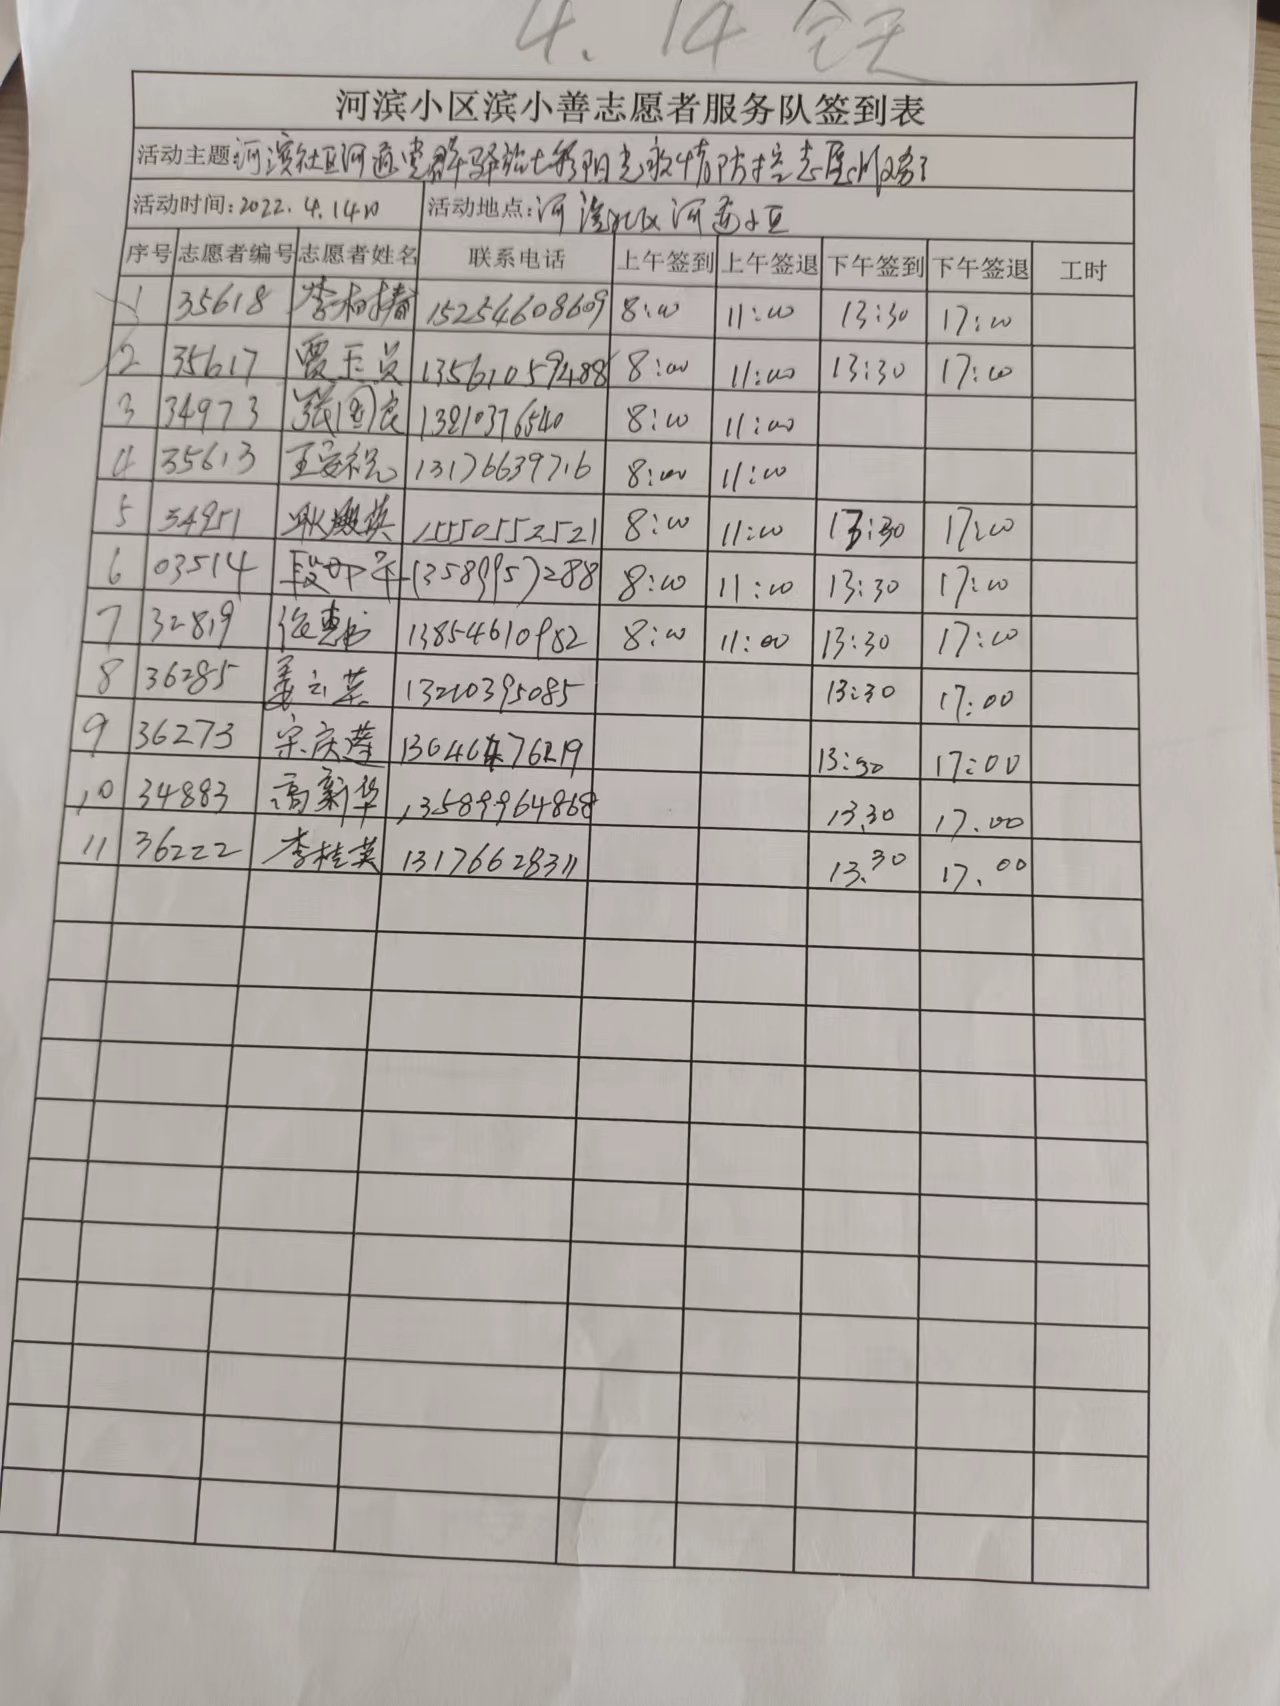 4.14 全天
河滨小区滨小善志愿者服务队签到表
活动主题:河滨社区河 党群驿站 阳光 疫情防控志愿服务
活动时间:2022.4.14日 活动地点:河滨社区河 小区
序号 志愿者编号 志愿者姓名 联系电话 上午签到 上午签退 下午签到 下午签退 工时
1 35618 李柏椿 15254608609 8:00 11:00 13:30 17:00
2 35617 贾玉 13561059488 8:00 11:00 13:30 17:00
3 34973 张国良 13210376540 8:00 11:00
4 35613 王 13176639716 8:00 11:00
5 34951 耿 英 15550552521 8:00 11:00 13:30 17:00
6 03514 段 13589957288 8:00 11:00 13:30 17:00
7 32819 徐惠 13854610982 8:00 11:00 13:30 17:00
8 36285 姜云英 13210395085 13:30 17:00
9 36273 宋庆莲 13:30 17:00
10 34883 高新华 13589964868 13.30 17.00
11 36222 李桂英 13176628311 13.30 17.00